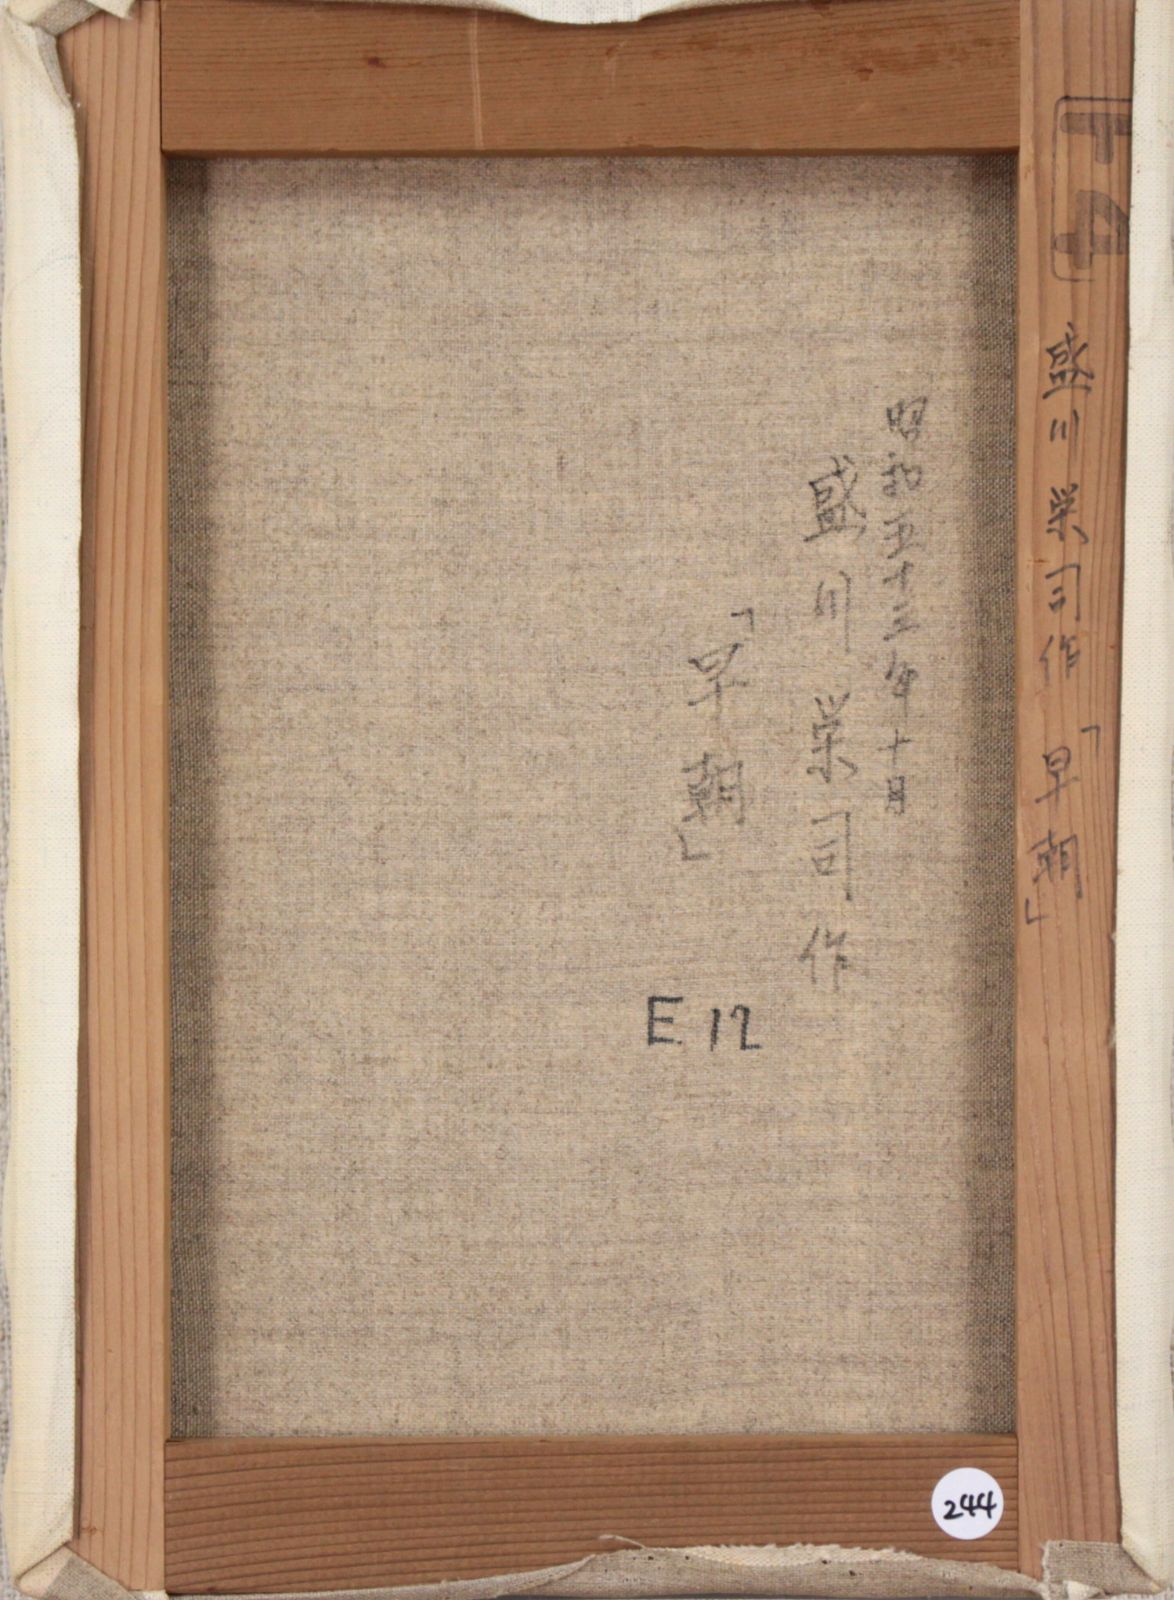 F4
盛川栄司作「早朝」
昭和五十三年十月
盛川栄司作
「早朝」
E12
244